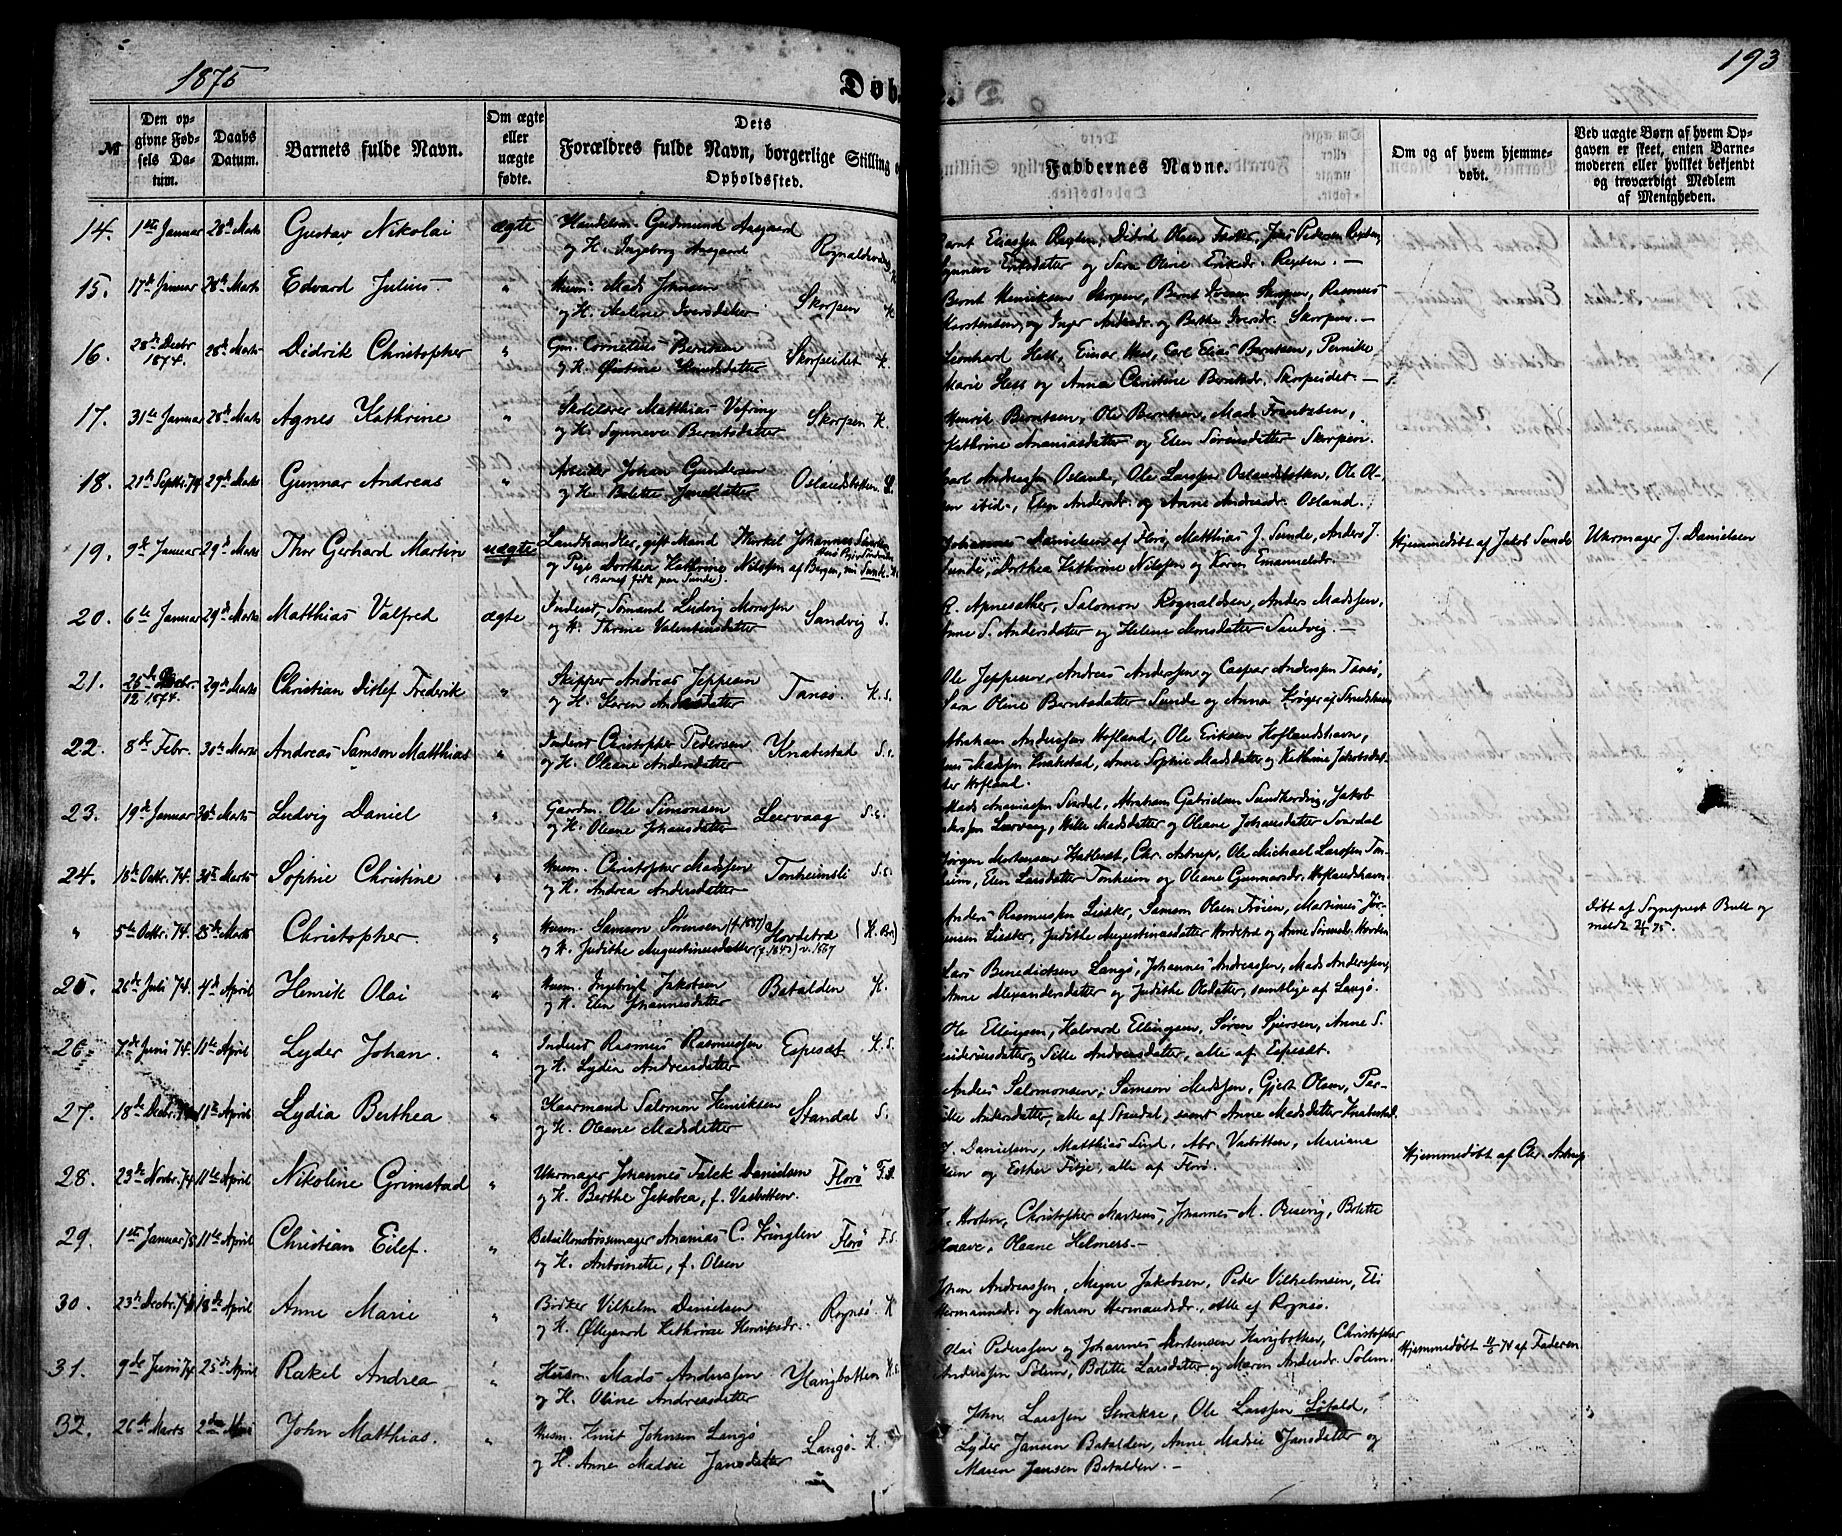 1875
Døbte.
193
№
Den opgivne Fødsels Datum.
Daabs Datum.
Barnets fulde Navn.
Om ægte eller uægte fødte.
Dets Forældres fulde Navn, borgerlige Stilling
Opholdssted.
Faddernes Navne.
Om og af hvem hjemmedøbt.
Ved uægte Børn af hvem Opgaven er skeet, enten Barnemoderen eller hvilket bekjendt og troværdigt Medlem af Menigheden.
14. 1ste Januar 28de Marts Gustav Nikolai ægte Gudmund Aasgaard
og H. Ingeborg Aasgaard
Eliassen Rexten, Didrik Olsen Jens Pedersen Rexten,
og Sara Oline Eriksdr. Rexten. —
15. 17de Januar 28de Marts Edvard Julius „ Huusm. Mads Johnsen
og H. Malene Iversdatter Skorpen K
Bernt Henriksen Skorpen, Bernt Iversen Skorpen, Rasmus
Karstensen, og Inger Andersdr. og Berthe Iversdr. Skorpen. —
16. 28de Decbr 1874. 28de Marts Didrik Christopher „ Gm. Cornelius Berntsen
og H. Knudsdatter Skorpeidet K.
Leonhard Hess, Einar Hess, Carl Elias Berntsen, Pernike
Marie Hess og Anna Christine Berntsdr. Skorpeidet. —
17. 31te Januar 28de Marts Agnes Kathrine „ Skolelærer Matthias Vefring
og H. Synneve Berntsdatter Skorpen K.
Henrik Berntsen, Ole Berntsen, Mads
Kathrine Ananiasdatter og Elen Sørensdatter Skorpen.
18. 21de Septbr. 74 29de Marts Gunnar Andreas „ Arbeider Johan Gundersen
og H. Bolette Jonsdatter Oslandsbotten
Carl Osland, Ole Larssen Oslandsbotten, Ole
ibid., Elen Andersdr. og Anne Andersdr. Osland.
19. 9de Januar 29de Marts Thor Gerhard Martin uægte Landhandler, gift Mand Mikkel Johannes
og Pige Dorthea Kathrine Nilssen af Bergen, nu Sunde. K.
(Barnet født paa Sunde).
Johannes Danielsen af Florø, Matthias J. Sunde, Anders J.
Sunde, Dorthea Kathrine Nilssen og Karen Emanuelsdr.
Hjemmedøbt af Jakob Sunde
Uhrmager J. Danielsen
20. 6te Januar 29de Marts Matthias Valfred ægte Inderst, Sømand Ludvig Monssen
og H. Thrine Valentinsdatter Sandvig S.
Salomon Rognaldsen, Anders Madssen,
Anne S. Andersdatter og Helene Monsdatter Sandvig. —
21. 25de 12 1874. 29de Marts Christian Ditlef Frederik „ Skipper Andreas Jeppesen
og H. Karen Andersdatter Tansø K. s.
Ole Jeppesen, Andreas Anderssen og Caspar Anderssen Tansø,
Sara Oline Berntsdatter Sunde og Anna Krøger af
22. 8de Febr. 30te Marts Andreas Samson Matthias „ Inderst Christopher Pedersen
og H. Oleane Andersdatter Knabestad S. s.
Abraham Anderssen Hofland, Ole Eriksen Hoflandshavn,
Madssen Knabestad, Anne Sophie Madsdatter og Kathrine Jakobsdatter
Hofland.
23. 19de Januar 30te Marts Ludvig Daniel „ Gaardm. Ole Simonsen
og H. Oleane Johansdatter Leervaag S. s.
Mads Ananiassen Svardal, Abraham Gabrielsen Jakob
Leervaag, Madsdatter og Oleane Johansdatter Svardal
24. 18de Octbr. 74. 30te Marts Sophie Christine „ Huusm. Christopher Madssen
og H. Andrea Andersdatter Tonheimsli S. s.
Jørgen Mortensen Chr. Astrup, Ole Michael Larssen Tonheim,
Elen Larsdatter Tonheim og Oleane Gunnarsdr. Hoflandshavn
„ 5te Octbr. 74. 25de Marts Christopher. „ Huusm. Samson Sørensen
og H. Judithe Augustinusdatter Hovdetræ (K. Br.)
Anders Rasmussen Samson Olsen Martinus
Judithe Augustinusdatter og Anne Sørensdr.
Døbt af Sognepræst Bull og
meldt
25. 26de Juli 74. 4de April Henrik Olai „ Huusm. Ingebrigt Jakobsen
og H. Elen Johannesdatter Batalden K.
Lars Benedictsen Langø, Johannes Andreassen, Mads Anderssen,
Anne Alexandersdatter og Judithe Olsdatter, samtlige af Langø.
26. 7de Juni 74. 11te April Lyder Johan. „ Inderst Rasmus Rasmussen
og H. Lydia Andreasdatter Espesæt K. S.
Ole Ellingsen, Halvard Ellingsen, Søren Sjursen, Anne S.
og Sille Andreasdatter, alle af Espesæt.
27. 18de Decbr. 11te April Lydia Berthea „ Kaarmand Salomon Henriksen
og H. Oleane Madsdatter Standal S.
Anders Salomonsen, Samson Madssen, Gjert Olsen,
Andersdatter, alle af Standal, samt Anne Madsdatter Knabestad.
28. 23de Novbr. 74 11te April Nikoline Grimstad „ Uhrmager Johannes Falck Danielsen
og H. Berthe Jakobea, f. Vasbotten Florø
J. Danielsen, Matthias Lind, Abr. Vasbotten, Mariane
og Esther Fitje, alle af Florø.
Hjemmedøbt af Chr. Astrup
29. 1ste Januar 75 11te April Christian Eilef. „ Ananias C.
og H. Antoinette, f. Olsen Florø F. s.
Christopher Martens, Johannes M. Bolette
Oleane Helmers. —
30. 23de Decbr. 74 18de April Anne Marie „ Bødker Vilhelm Danielsen
og H. Kathrine Rognsø. K
Johan Andreassen, Magne Jakobsen, Peder Vilhelmsen, Eli
Hermannsdr. og Maren Hermandsdr., alle af Rognsø.
31. 9de Juni 74 25de April Rakel Andrea „ Huusm. Mads Anderssen
og H. Oliane Andreasdatter Havigbotten K. s.
Olai Pederssen og Johannes Mortensen Havigbotten, Christopher
Anderssen Solem, Bolette Larsdatter og Maren Andersdr. Solem.
Hjemmedøbt 11/6 74 af Faderen
32. 26de Marts 2den Mai John Matthias. „ Huusm. Knut Johnsen Langø
og H. Anne Madsie Jansdatter Langø. K.
John Larssen Ole Larssen Løfald,
Lyder Jansen Batalden, Anne Madsie Jansdatter og
Maren Jansen Batalden. —